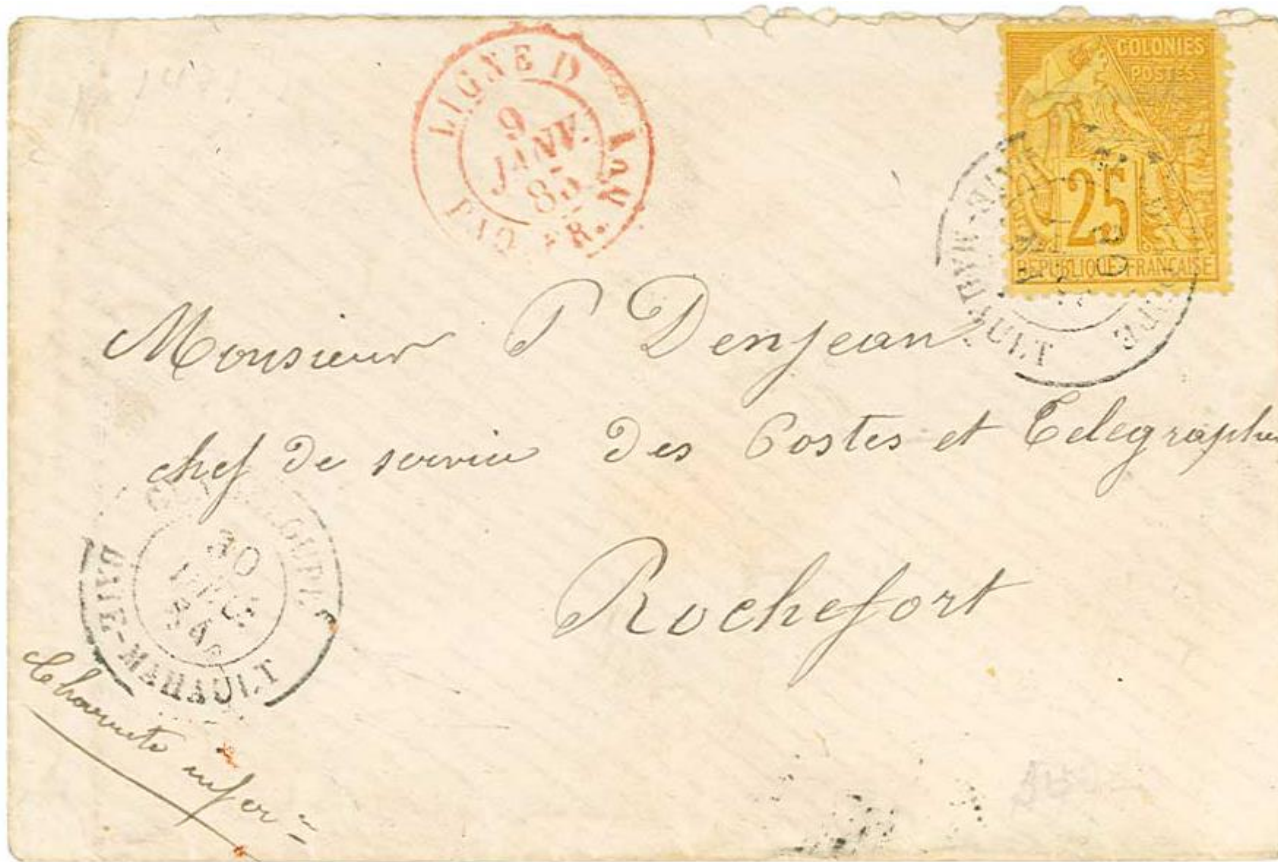 LIGNE D
PAQ. FR. Nº 1
9
JANV.
85
COLONIES
POSTES
25
RÉPUBLIQUE FRANÇAISE
BAIE-MAHAULT
Monsieur P Denjean
chef de service des Postes et Telegraphe
Rochefort
GUADELOUPE
30
BAIE-MAHAULT
Charente infer=